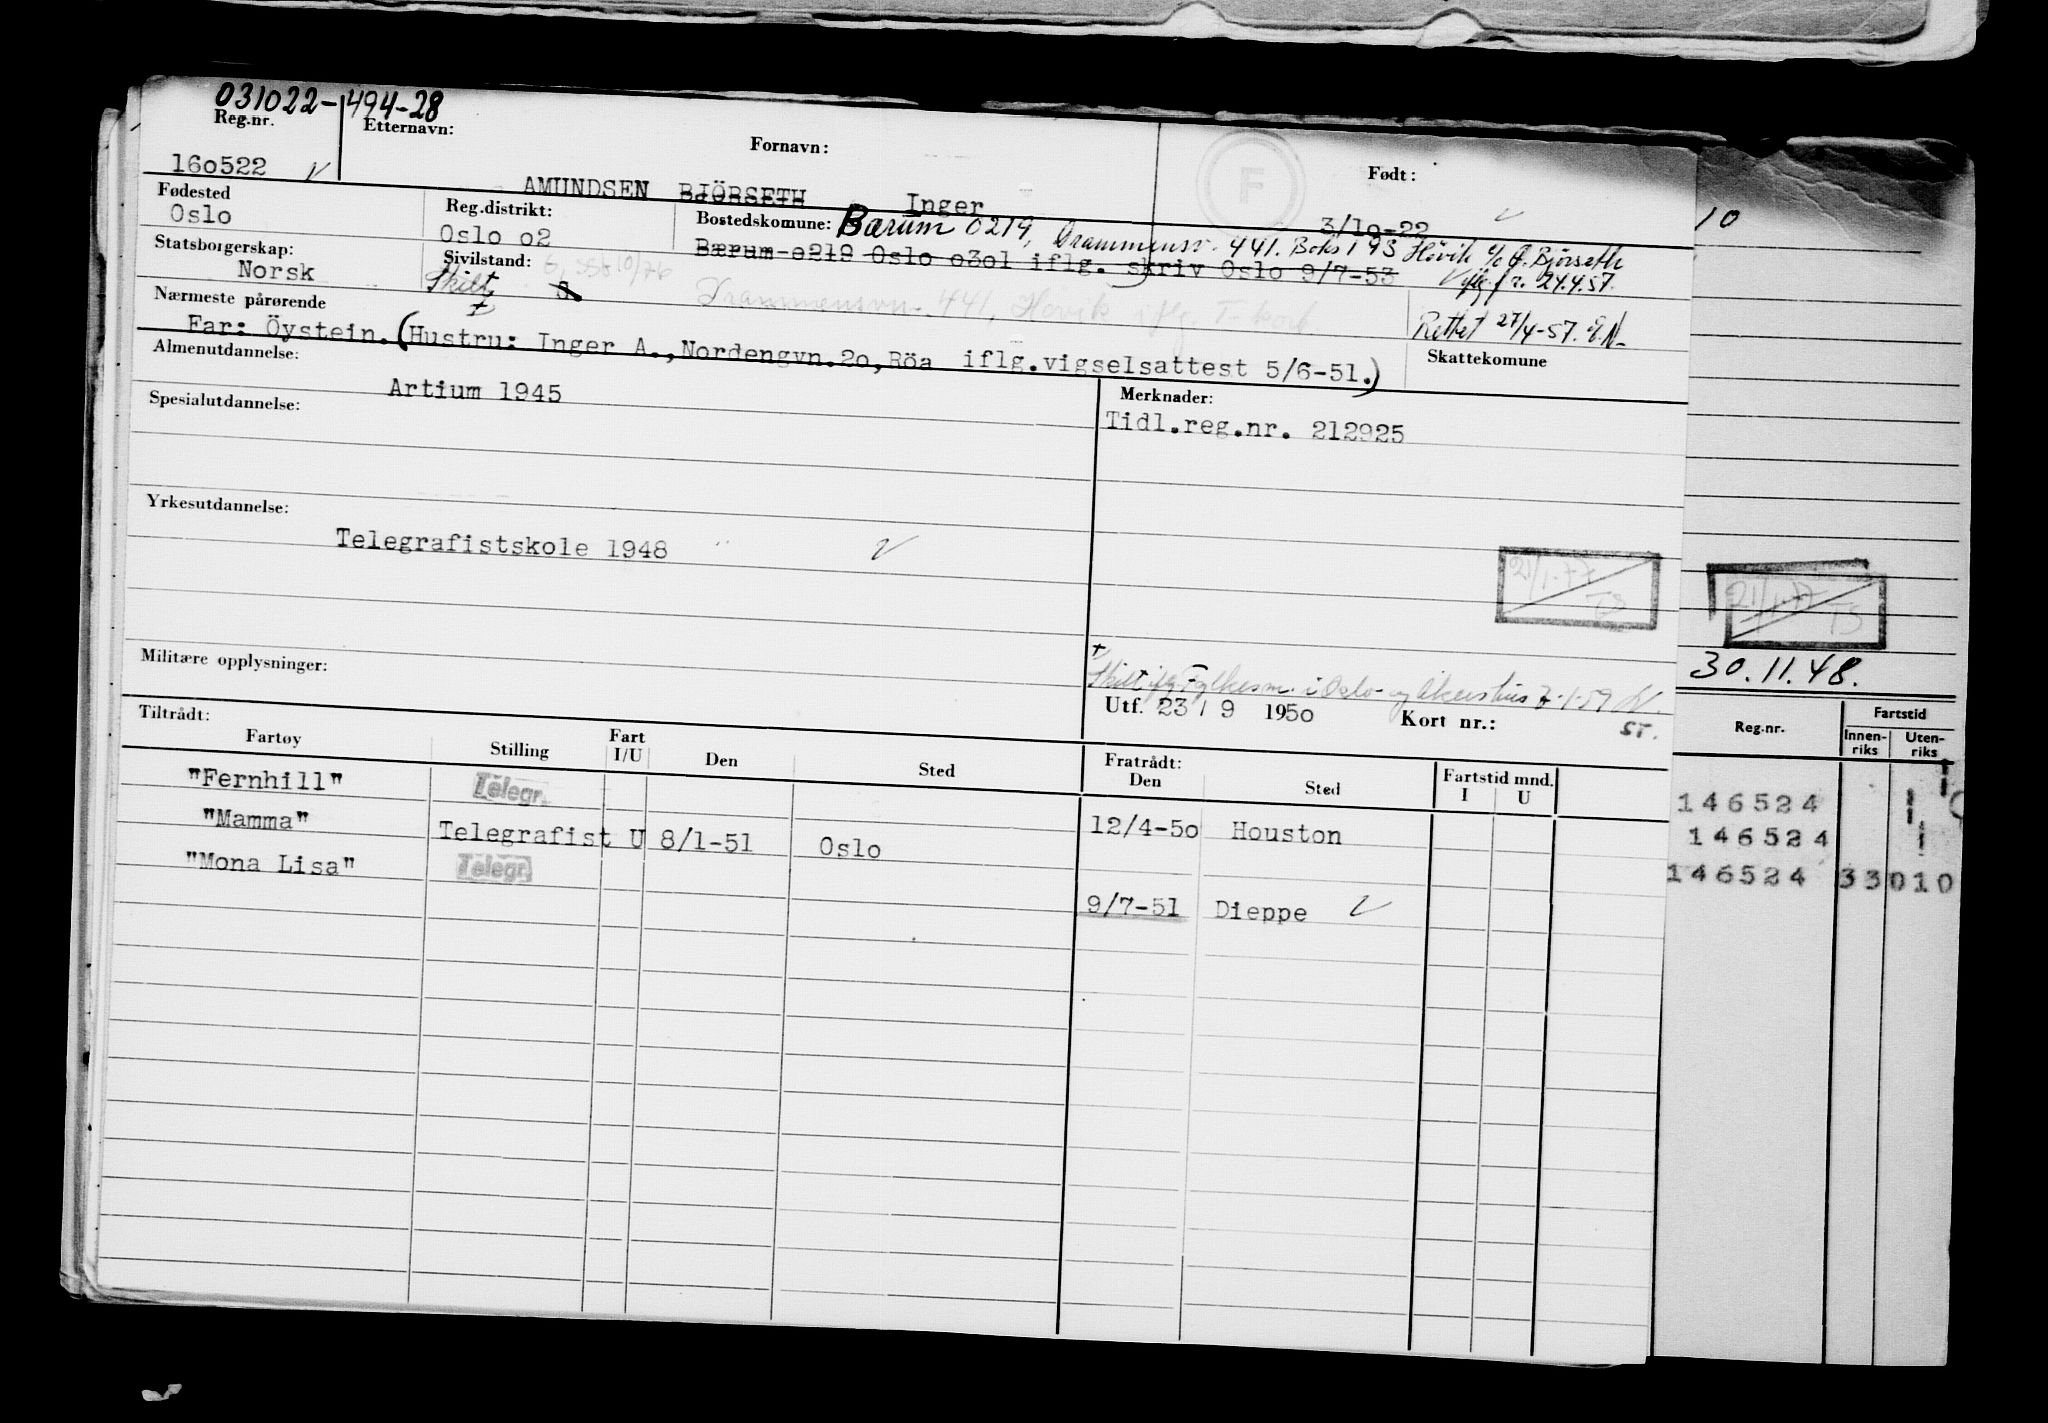 031022-494-28
Reg.nr. Etternavn: Fornavn: Født:
160522 AMUNDSEN BJÖRSETH Inger 3/10-22
F
Fødested Reg.distrikt: Bostedskomune: Bærum 0219, Drammensv. 441. Boks 193 Hövik c/o Ö. Björseth
Oslo Oslo o2 Bærum o219 Oslo o3o1 iflg. skriv Oslo 9/7-53 iflg. fr. 24.4.57.
Statsborgerskap: Sivilstand:
Norsk Skilt
Drammensvn. 441, Hövik iflg. T-kort
Nærmeste pårørende Rettet 27/4-57.
Far: Öystein. (Hustru: Inger A.,Nordengvn.2o,Röa iflg.vigselsattest 5/6-51.)
Almenutdannelse: Skattekomune
Artium 1945 Merknader:
Spesialutdannelse: Tidl.reg.nr. 212925
Yrkesutdannelse:
Telegrafistskole 1948
21/1-77 TS
21/1-77 TS
Militære opplysninger: Skilt iflg. Fylkesm. i Oslo og Akershus
30.11.48.
Tiltrådt: Utf. 23 / 9 1950 Kort nr.: ST.
Fartøy Stilling Fart I/U Den Sted Fratrådt: Den Sted Fartstid mnd. I U
Reg.nr. Fartstid Innen-riks Uten-riks
"Fernhill" Telegr. 12/4-5o Houston
146524
"Mamma" Telegrafist U 8/1-51 Oslo
146524
"Mona Lisa" Telegr. 9/7-51 Dieppe
146524 33 010
10